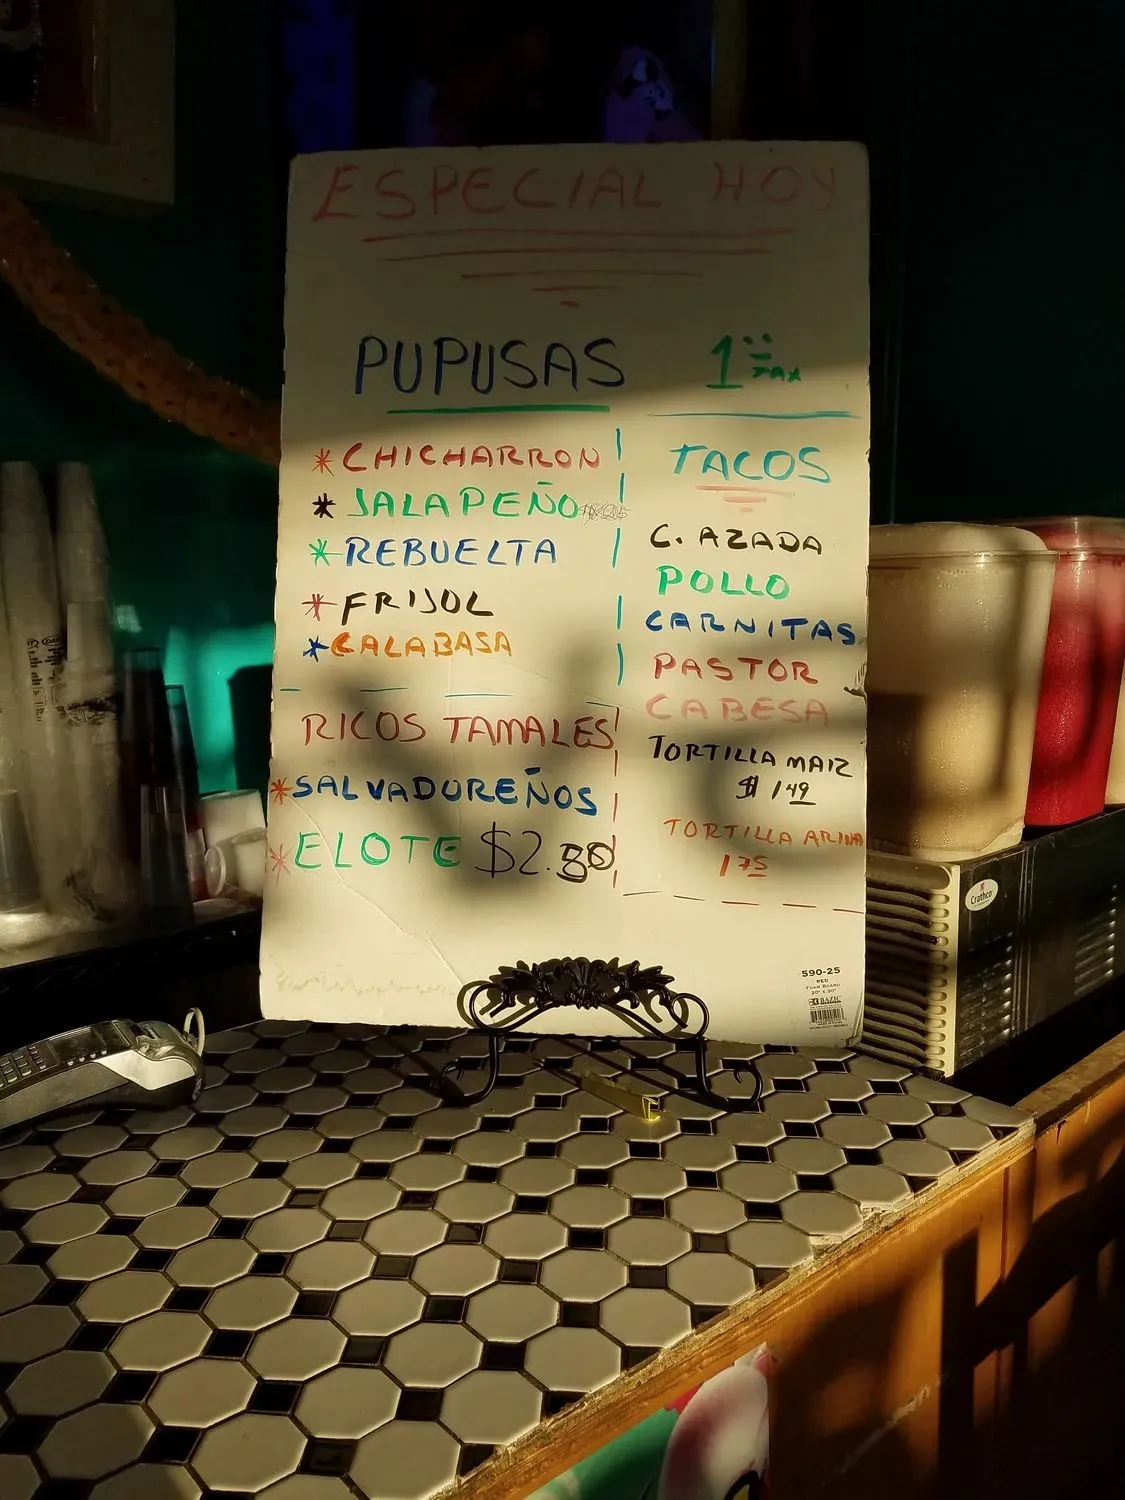 ESPECIAL HOY
PUPUSAS 1
TAX
* CHICHARRON
* JALAPEÑO
* REBUELTA
* FRIJOL
* CALABASA
RICOS TAMALES
* SALVADUREÑOS
* ELOTE $2.50
TACOS
C. AZADA
POLLO
CARNITAS
PASTOR
CABESA
TORTILLA MAIZ
$ 1 49
TORTILLA ARINA
1 75
590-25
RED
FOAM BOARD
20" X 30"
BAZIC
Crathco